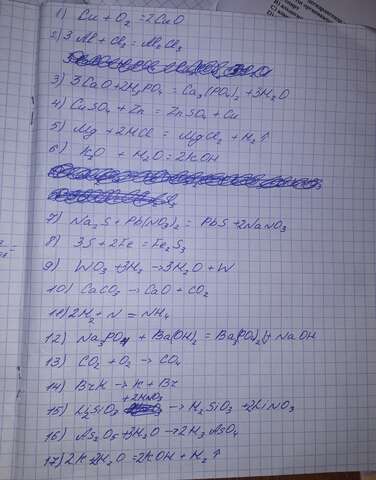 1) Cu + O₂ = 2CuO
2) 3 Al + Cl₂ = Al₂Cl₃
3) 3 CaO + 2H₃PO₄ = Ca₃(PO₄)₂ + 3H₂O
4) CuSO₄ + Zn = ZnSO₄ + Cu
5) Mg + 2HCl = MgCl₂ + H₂↑
6) K₂O + H₂O = 2KOH
7) Na₂S + Pb(NO₃)₂ = PbS + 2NaNO₃
8) 3S + 2Fe = Fe₂S₃
9) WO₃ + 3H₂ → 3H₂O + W
10) CaCO₃ → CaO + CO₂
11) 2H₂ + N = NH₄
12) Na₃PO₄ + Ba(OH)₂ = Ba₃(PO₄)₂ + NaOH
13) CO₂ + O₂ → CO₄
14) BrK → K + Br
15) Li₂SiO₃ + 2HNO₃ → H₂SiO₃ + 2LiNO₃
16) As₂O₅ + 3H₂O → 2H₃AsO₄
17) 2K + 2H₂O = 2KOH + H₂↑